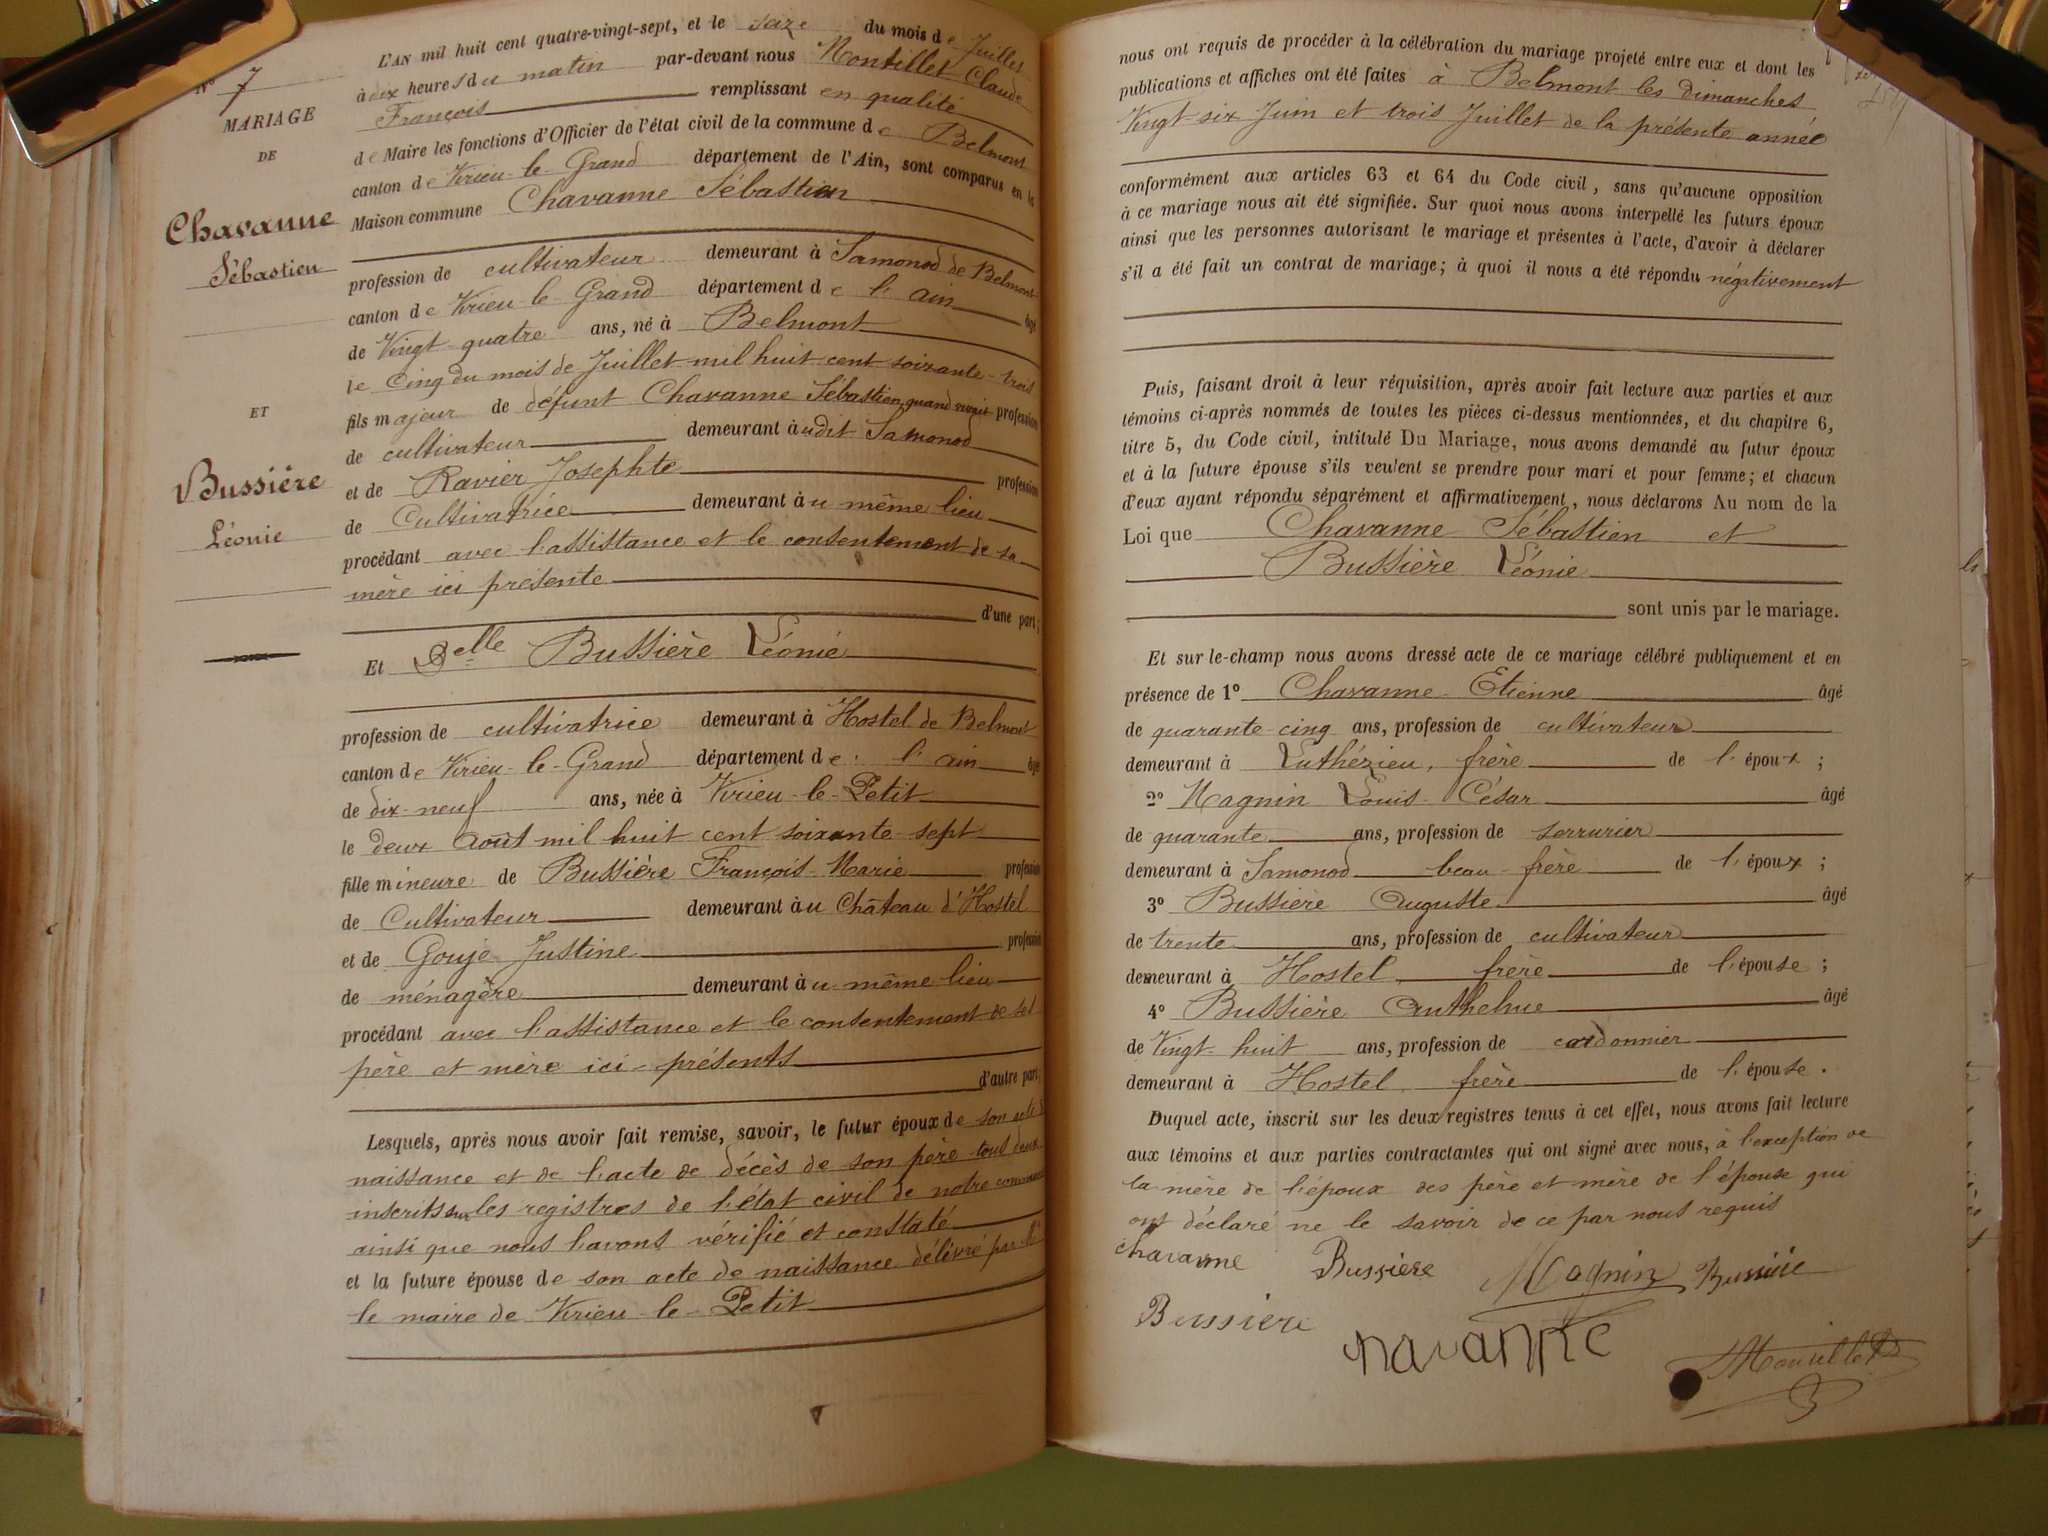 N° 7
MARIAGE
DE
Chavanne
Sébastien
ET
Bussière
Léonie
L'AN mil huit cent quatre-vingt-sept, et le seize du mois de Juillet
à dix heures du matin par-devant nous Montillet Claude
François remplissant en qualité
de Maire les fonctions d'Officier de l'état civil de la commune de Belmont
canton de Virieu-le-Grand département de l'Ain, sont comparus en la
Maison commune Chavanne Sébastien
profession de cultivateur demeurant à Samonod de Belmont
canton de Virieu-le-Grand département de l'ain âgé
de Vingt-quatre ans, né à Belmont
le cinq du mois de Juillet mil huit cent soixante-trois
fils majeur de défunt Chavanne Sébastien, quand vivait profession
de cultivateur demeurant audit Samonod
et de Ravier Josephte profession
de Cultivatrice demeurant au même lieu
procédant avec l'assistance et le consentement de sa
mère ici présente
d'une part;
Et Delle Bussière Léonie
profession de cultivatrice demeurant à Hostel de Belmont
canton de Virieu-le-Grand département de l'ain âgé
de dix-neuf ans, née à Virieu-le-Petit
le deux août mil huit cent soixante-sept
fille mineure de Bussière François-Marie profession
de Cultivateur demeurant au Château d'Hostel
et de Gouje Justine profession
de ménagère demeurant au même lieu
procédant avec l'assistance et le consentement de ses
père et mère ici-présents
d'autre part;
Lesquels, après nous avoir fait remise, savoir, le futur époux de son acte de
naissance et de l'acte de décès de son père tous deux
inscrits sur les registres de l'état civil de notre commune
ainsi que nous l'avons vérifié et constaté
et la future épouse de son acte de naissance délivré par
le maire de Virieu-le-Petit
nous ont requis de procéder à la célébration du mariage projeté entre eux et dont les
publications et affiches ont été faites à Belmont les dimanches
Vingt-six Juin et trois Juillet de la présente année
conformément aux articles 63 et 64 du Code civil, sans qu'aucune opposition
à ce mariage nous ait été signifiée. Sur quoi nous avons interpellé les futurs époux
ainsi que les personnes autorisant le mariage et présentes à l'acte, d'avoir à déclarer
s'il a été fait un contrat de mariage; à quoi il nous a été répondu négativement
Puis, faisant droit à leur réquisition, après avoir fait lecture aux parties et aux
témoins ci-après nommés de toutes les pièces ci-dessus mentionnées, et du chapitre 6,
titre 5, du Code civil, intitulé Du Mariage, nous avons demandé au futur époux
et à la future épouse s'ils veulent se prendre pour mari et pour femme; et chacun
d'eux ayant répondu séparément et affirmativement, nous déclarons Au nom de la
Loi que Chavanne Sébastien et
Bussière Léonie
sont unis par le mariage.
Et sur-le-champ nous avons dressé acte de ce mariage célébré publiquement et en
présence de 1° Chavanne Etienne âgé
de quarante-cinq ans, profession de cultivateur
demeurant à Luthézieu, frère de l'époux;
2° Magnin Louis César âgé
de quarante ans, profession de serrurier
demeurant à Samonod beau-frère de l'époux;
3° Bussière Auguste âgé
de trente ans, profession de cultivateur
demeurant à Hostel frère de l'épouse;
4° Bussière Anthelme âgé
de Vingt-huit ans, profession de cordonnier
demeurant à Hostel frère de l'épouse.
Duquel acte, inscrit sur les deux registres tenus à cet effet, nous avons fait lecture
aux témoins et aux parties contractantes qui ont signé avec nous, à l'exception de
la mère de l'époux des père et mère de l'épouse qui
ont déclaré ne le savoir de ce par nous requis
chavanne Bussiere Magnin Bussière
Bussiere
havanne
Montillet